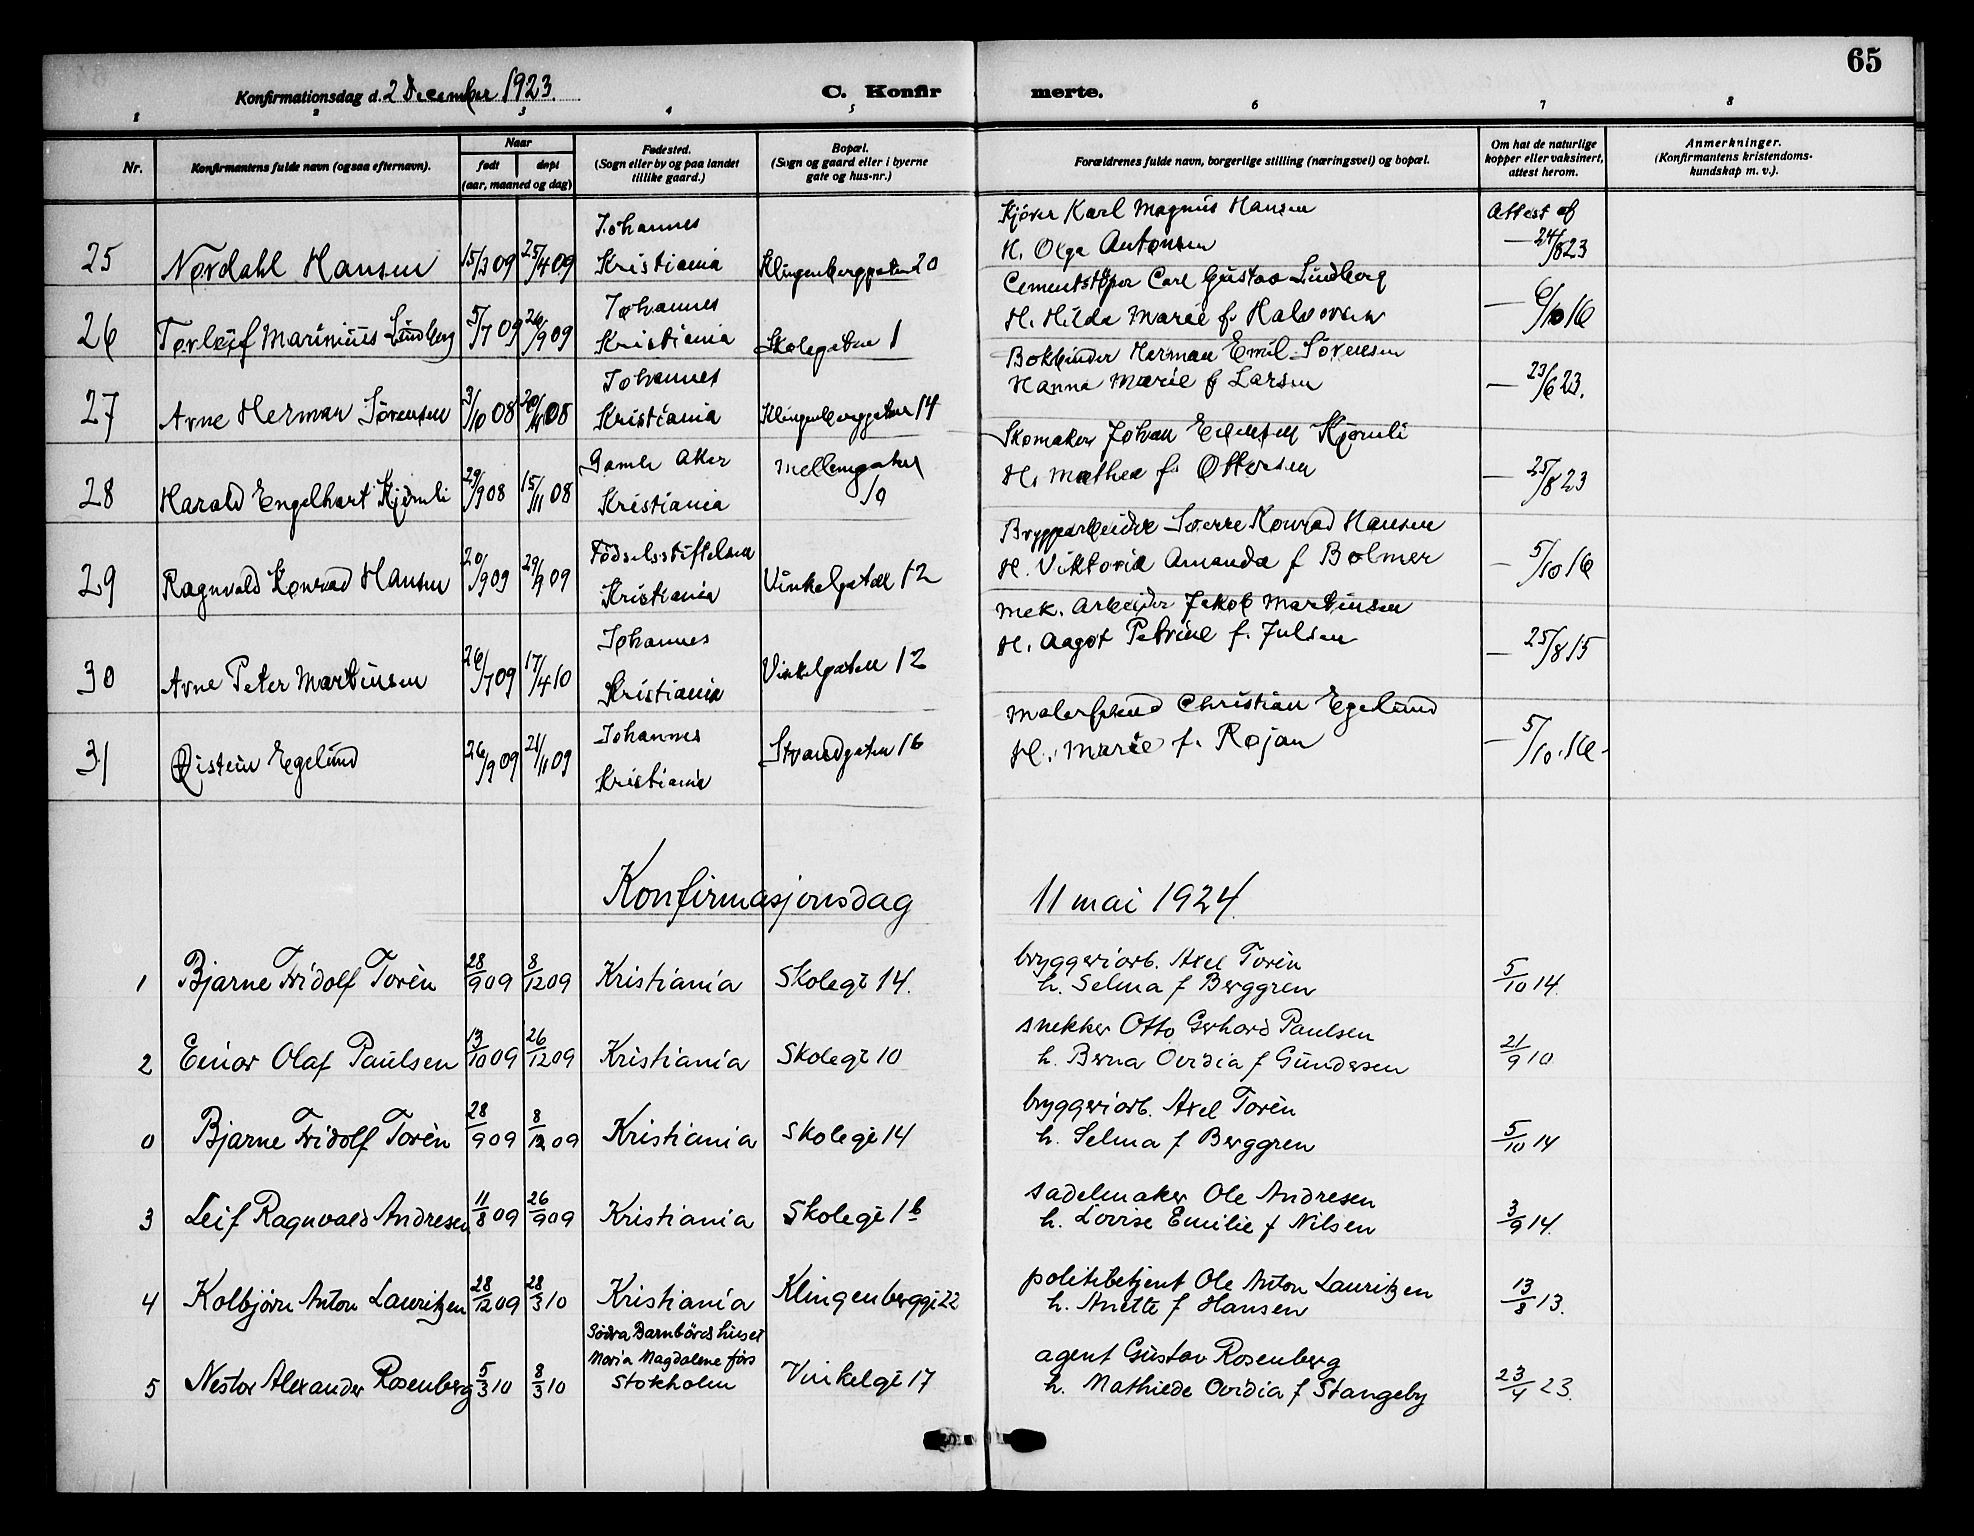 65
Konfirmationsdag d. 2 December 1923.
C. Konfirmerte.
1 2 3 4 5 6 7 8
Nr. Konfirmantens fulde navn (ogsaa efternavn). Naar født døpt (aar, maaned og dag) Fødested. (Sogn eller by og paa landet tillike gaard.) Bopæl. (Sogn og gaard eller i byerne gate og hus-nr.) Forældrenes fulde navn, borgerlige stilling (næringsvei) og bopæl. Om hat de naturlige kopper eller vaksinert, attest herom. Anmerkninger. (Konfirmantens kristendoms-kundskap m. v.).
25 Nordahl Hansen 15/3 09 25/4 09 Johannes Kristiania Klingenberggaten 20 Kjører Karl Magnus Hansen
H. Olga Antonsen Attest af — 24/8 23
26 Torleif Marinius Lindberg 5/7 09 26/9 09 Johannes Kristiania Skolegaten 1 Cementstøper Carl Gustav Lindberg
H. Hilda Marie f. Halvorsen — 6/10 16
27 Arne Herman Sørensen 3/10 08 Johannes Kristiania Klingenberggaten 14 Bokbinder Herman Emil Sørensen
Hanna Marie f Larsen — 23/6 23.
28 Harald Engelhart Kjømli 29/9 08 15/11 08 Gamle Aker Kristiania Mellemgaten 10 Skomaker Johan Kjømli
H. Mathea f. Ottesen — 25/8 23
29 Ragnvald Konrad Hansen 20/9 09 29/9 09 Fødselsstiftelsen Kristiania Vinkelgaten 12 Bryggearbeider Sverre Konrad Hansen
H. Viktoria Amanda f Bolmer — 5/10 16
30 Arne Peter Martinsen 26/7 09 17/4 10 Johannes Kristiania Vinkelgaten 12 Mek. Arbeider Jakob Martinsen
H. Aagot Petrine f. Julsen — 25/8 15
31 Øistein Egelund 26/9 09 21/11 09 Johannes Kristiania Strandgaten 16 Malersvend Christian Egelund
H. Marie f. Rojan — 5/10.16.
Konfirmasjonsdag 11 mai 1924.
1 Bjarne Fridolf Torèn 28/9 09 8/12 09 Kristiania Skolegt 14. bryggeriarb. Axel Torèn
h. Selma f Berggren 5/10 14.
2 Einar Olaf Paulsen 13/10 09 26/12 09 Kristiania Skolegt 10 snekker Otto Gerhard Paulsen
h. Berna Ovidia f Gundersen 21/9 10
0 Bjarne Fridolf Torèn 28/9 09 8/12 09 Kristiania Skolegt 14 bryggeriarb. Axel Torèn
h. Selma f Berggren 5/10 14
3 Leif Ragnvald Andresen 11/8 09 26/9 09 Kristiania Skolegt 1b sadelmaker Ole Andresen
h. Lovise Emilie f Nilsen 3/9 14.
4 Kolbjørn Anton Lauritzen 28/12 09 28/3 10 Kristiania Klingenberggt 22 politibetjent Ole Anton Lauritzen
h. Anette f Hansen 13/8 13.
5 Nestor Alexander Rosenberg 5/3 10 8/3 10 Södra Barnbördshuset
Maria Magdalene førs
Stokholm Vinkelgt 17 agent Gustav Rosenberg
h. Mathilde Ovidia f Stangeby 23/4 23.